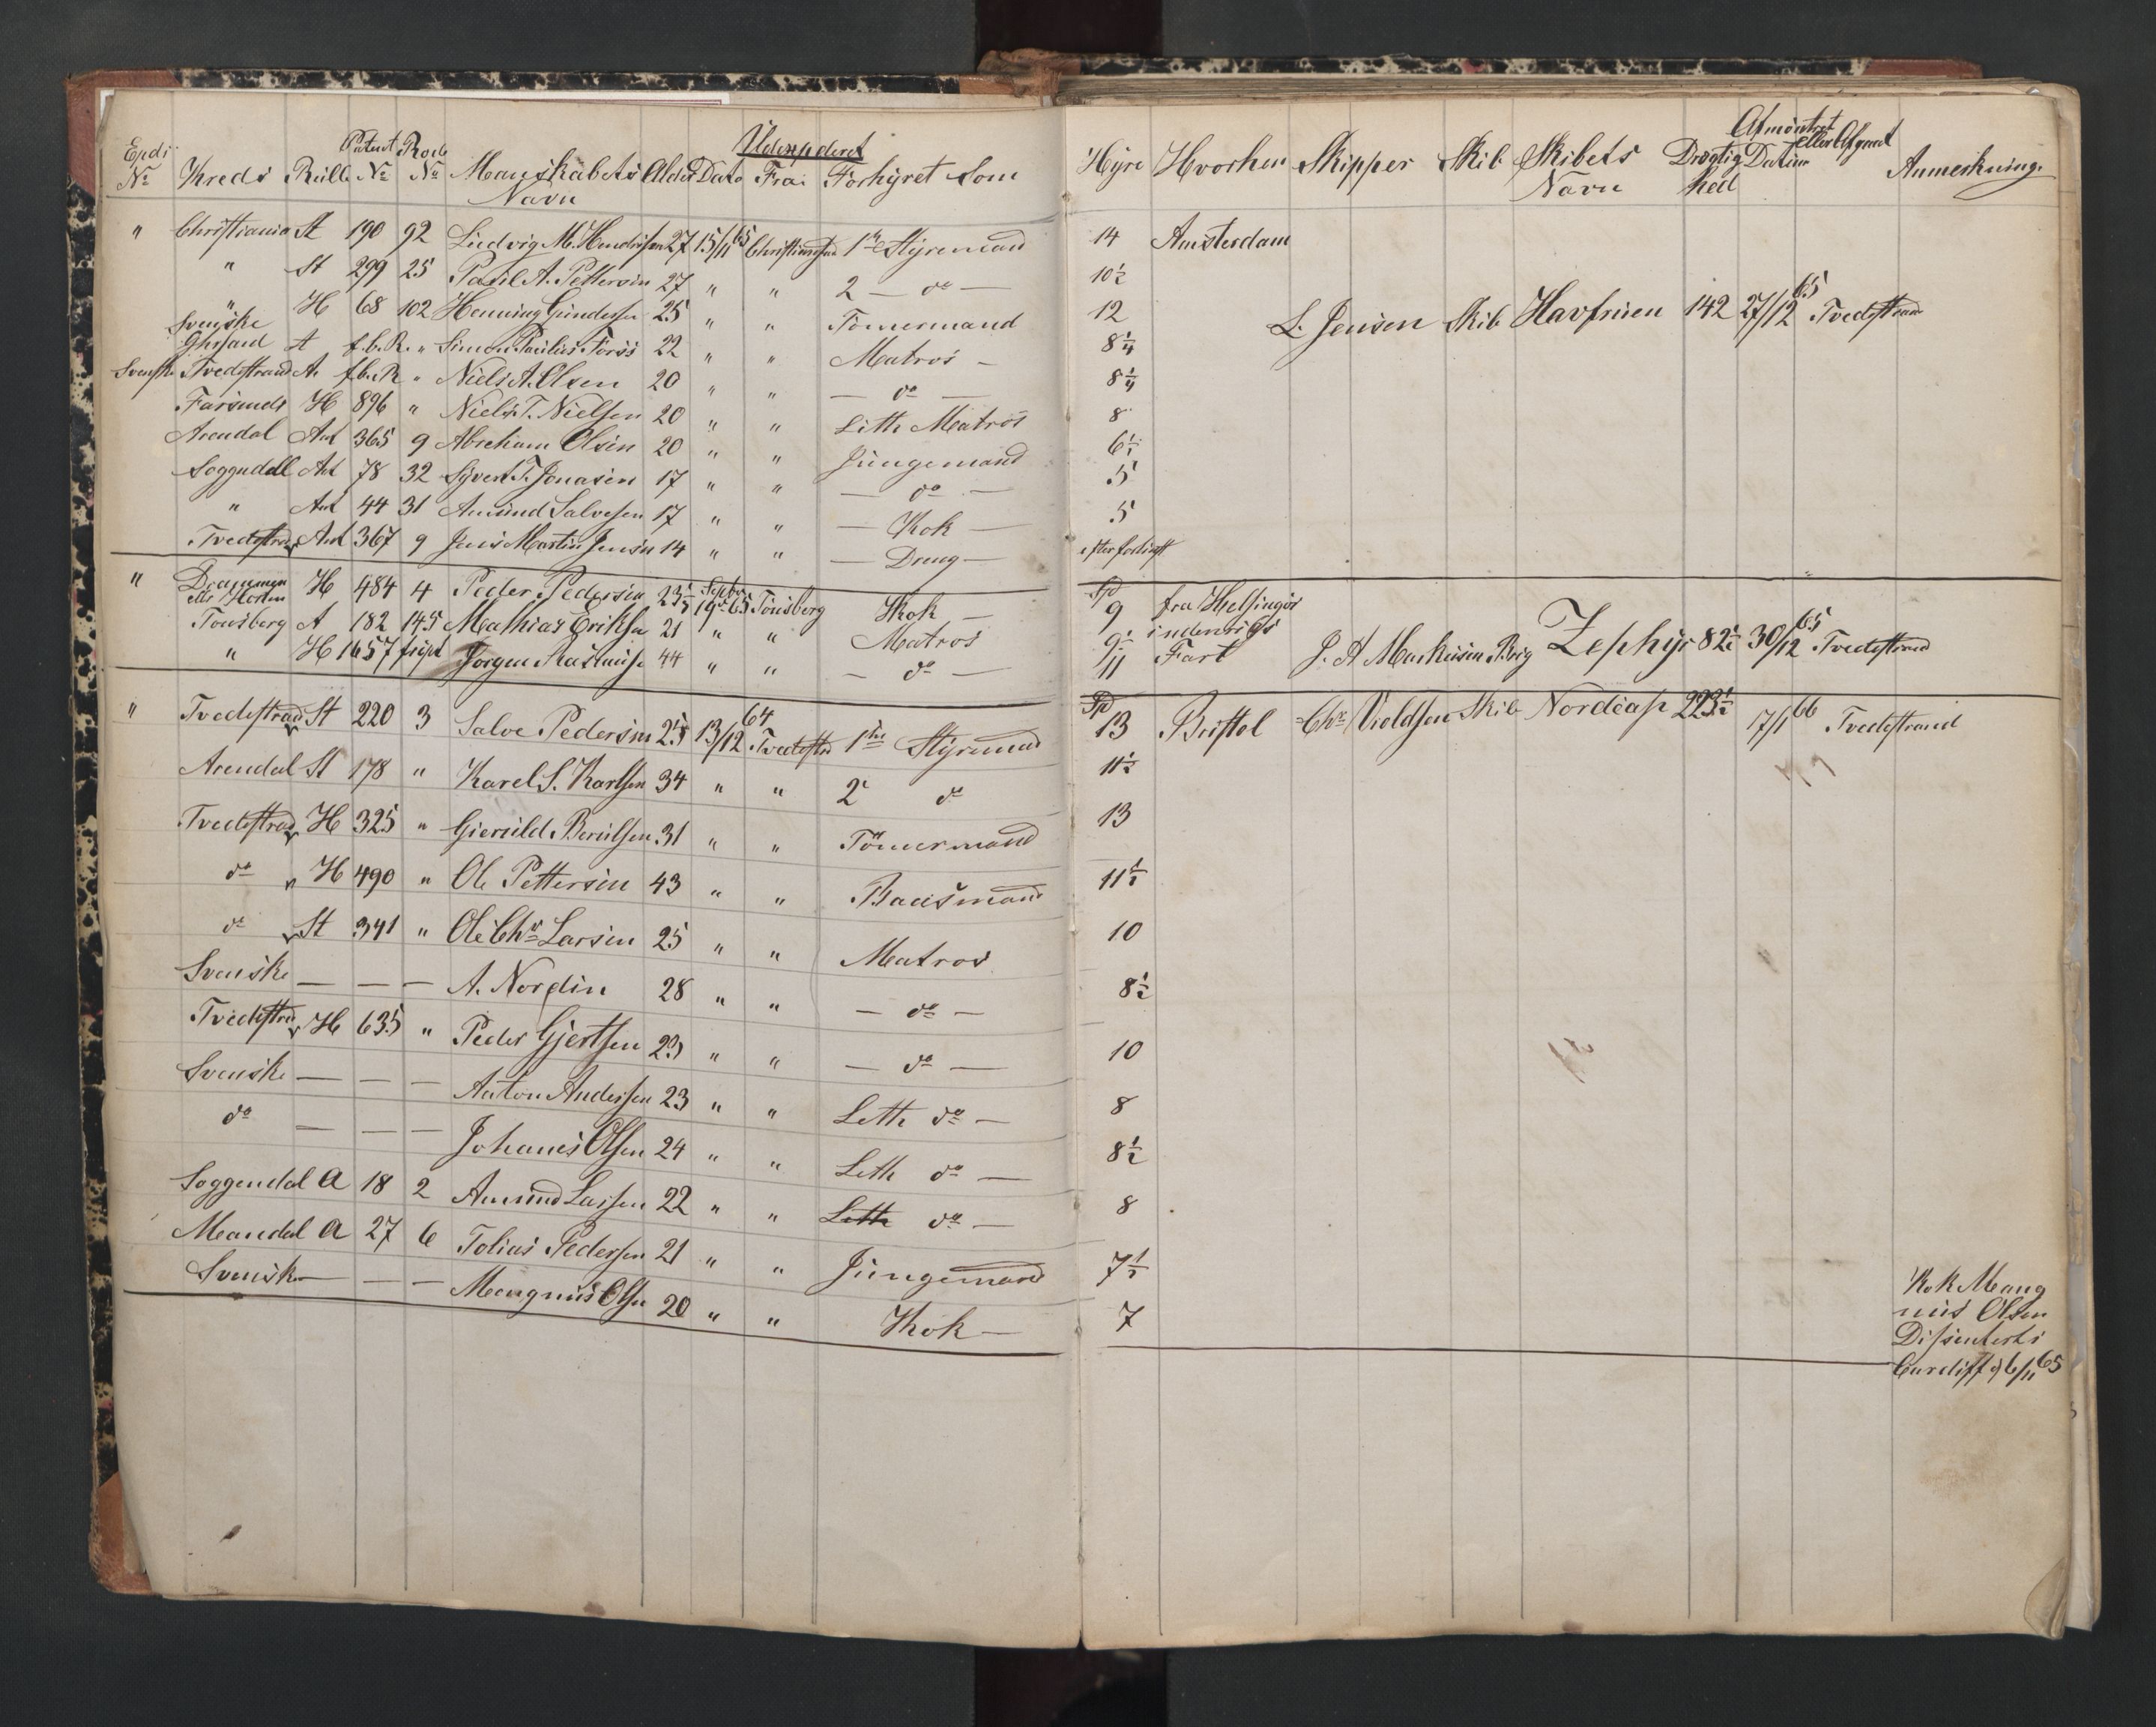 Expdi: No Kreds Rulle Patent No Rode No Mandskabets Navn Alder Udexpederet Dato Fra Forhyret Som Hyre Hvorhen Skipper Skib Skibets Navn Drægtighed Afmönstret eller Afgaaet Datum Anmerkning.
" Christiania St 190 92 Ludvig M. Hendriksen 27 15/11 65 Christiansand 1ste Styrmand 14 Amsterdam
" St 299 25 Paul A. Pettersen 27 " " 2 — do — 10½
" H 68 102 Henning Gundersen 25 " " Tömermand 12 L. Jensen Skib Havfruen 142 27/12 65 Tvedestrand
Svenske
Chrsand A f.b.R. " Simon Paulus Torss 22 " " Matros — 8¼
Svenske Tvedestrand A. f.b.R " Niels A. Olsen 20 " " — do — 8¼
Farsunds H 896 " Niels T. Nielsen 20 " " Leth Matros 8
Arendal Ant 365 9 Abraham Olsen 20 " " Jungemand 6½
Soggndal Ant 78 32 Syvert T. Jonasen 17 " " — do — 5
" Ant 44 31 Amund Salvesen 17 " " — Kok — 5
Tvedestrand Ant 367 9 Jens Martin Jensen 14 " " — Dreng — efter fortienst
" Drammen eller Horten H 484 4 Peder Pedersen 23½ Septbr 19de 65 Tönsberg Kok — Spd 9 fra Helsingör
Tönsberg A 182 145 Mathias Eriksen 21 " " Matros 9½ indenrigs
" H 1657 Jørgen Rasmussen 44 " " — do — 11 Fart J. A Markusen Brig Zephyr 82½ 30/12 65 Tvedestrand
" Tvedestrand St 220 3 Salve Pedersen 25 13/12 64 Tvedestrand 1ste Styrmand Spd 13 Bristol Chr. Violdsen Skib Nordcap 223½ 17/1 66 Tvedestrand
Arendal St 178 " Karel S. Karlsen 34 " " 2 do 11½
Tvedestrand H 325 " Gieruld Berulsen 31 " " Tömermand 13
do " H 490 " Ole Pettersen 43 " " Baadsmand 11½
do St 341 " Ole Chr. Larsen 25 " " Matros 10
Svenske — — — A. Nordin 28 " " — do — 8½
Tvedestrand H 635 " Peder Gjertsen 23 " " — do — 10
Svenske — — — Anton Andersen 23 " " Leth do — 8
do — — — Johanes Olsen 24 " " Leth do — 8½
Soggendal A 18 2 Amund Larsen 22 " " Leth do — 8
Mandal A 27 6 Tobias Pedersen 21 " " Jungemand 7½
Svenske — — — Mangnus Olsen 20 " " Kok — 7
Kok Mang
nus Olsen
Dissenterti
Cardiff d 6/11 65